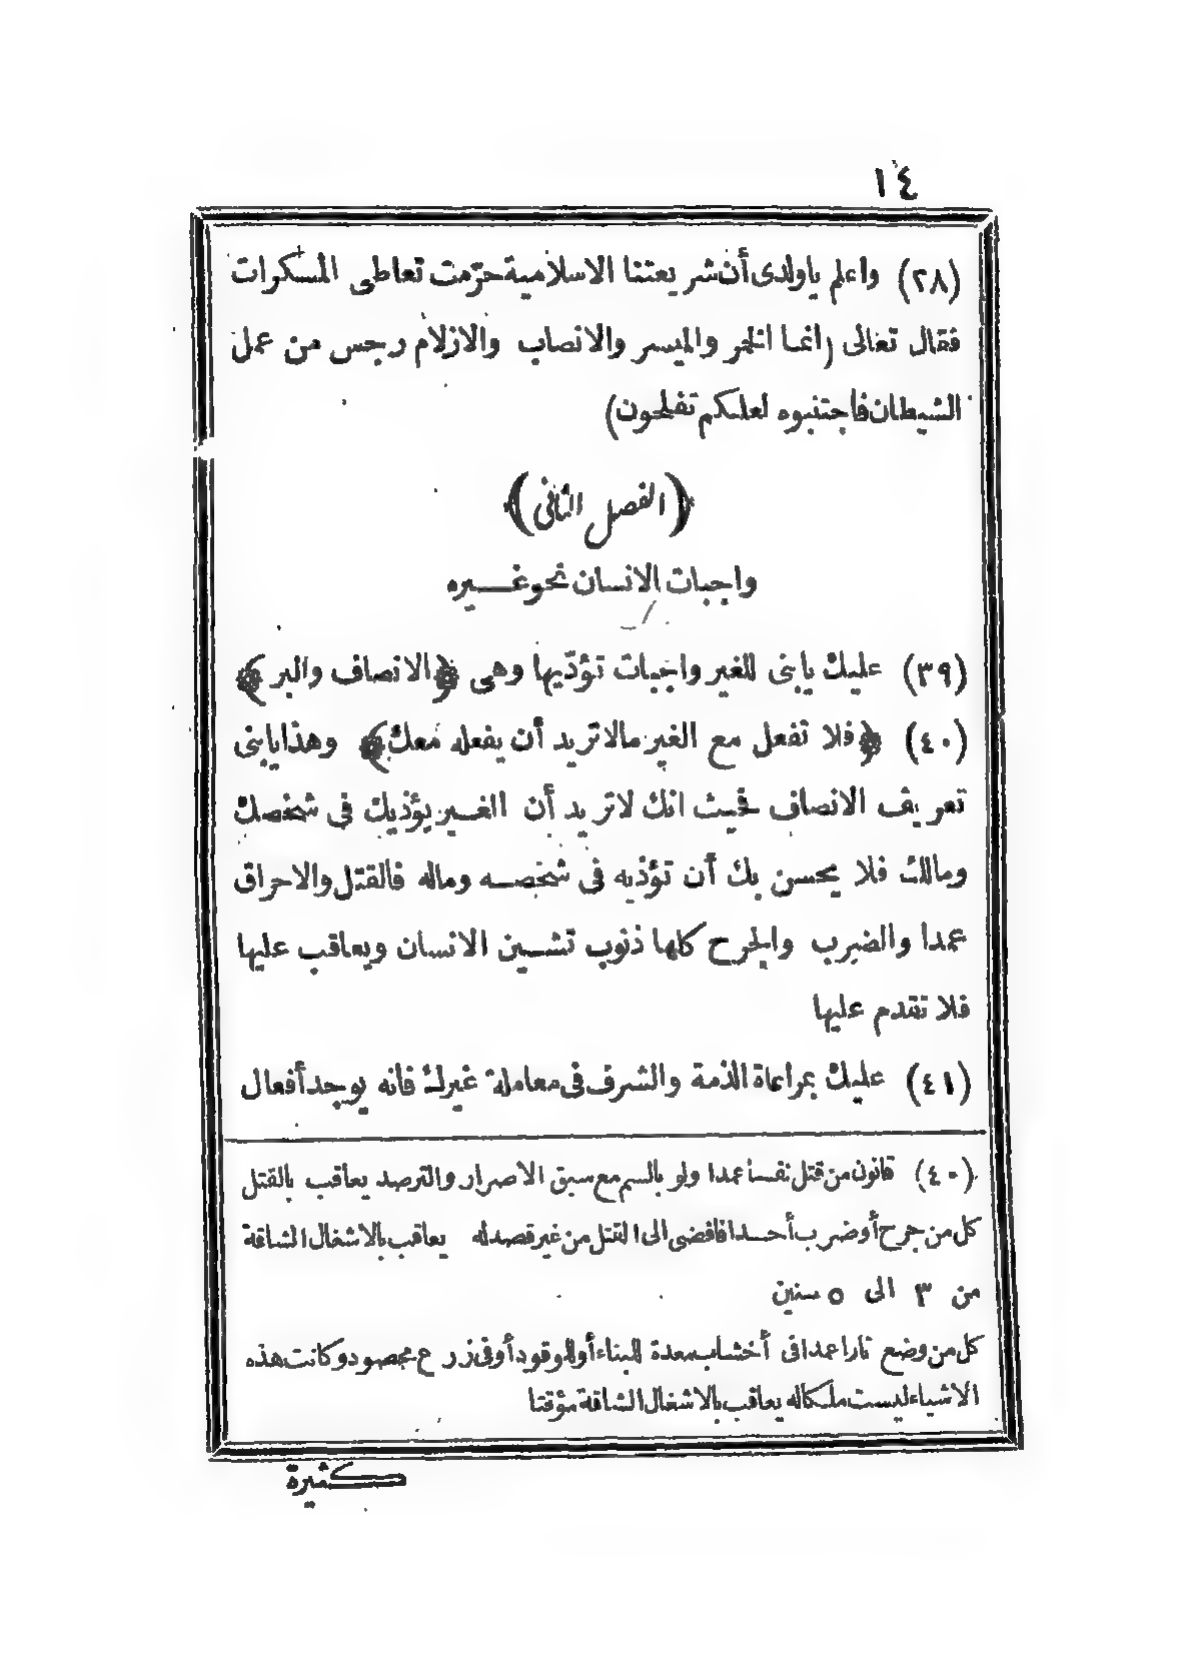 ١٤
(٢٨) واعلم ياولدى أن شريعتنا الاسلامية حرّمت تعاطى المسكرات
فقال تعالى (انما الخمر والميسر والانصاب والازلام رجس من عمل
الشيطان فاجتنبوه لعلكم تفلحون)
﴿الفصل الثانى﴾
واجبات الانسان نحو غيره
(٣٩) عليك يابنى للغير واجبات تؤدّيها وهى ﴿الانصاف والبر﴾
(٤٠) ﴿فلا تفعل مع الغير مالا تريد أن يفعله معك﴾ وهذا يابنى
تعريف الانصاف فحيث انك لا تريد أن الغير يؤذيك فى شخصك
ومالك فلا يحسن بك أن تؤذيه فى شخصه وماله فالقتل والاحراق
عمدا والضرب والجرح كلها ذنوب تشين الانسان ويعاقب عليها
فلا تقدم عليها
(٤١) عليك بمراعاة الذمة والشرف فى معاملة غيرك فانه يوجد أفعال
(٤٠) قانون من قتل نفسا عمدا ولو بالسم مع سبق الاصرار والترصد يعاقب بالقتل
كل من جرح أو ضرب أحدا فافضى الى القتل من غير قصد له يعاقب بالاشغال الشاقة
من ٣ الى ٥ سنين
كل من وضع نارا عمدا فى أخشاب معدة للبناء أو للوقود أو فى زرع محصود وكانت هذه
الاشياء ليست ملكا له يعاقب بالاشغال الشاقة مؤقتا
كثيرة